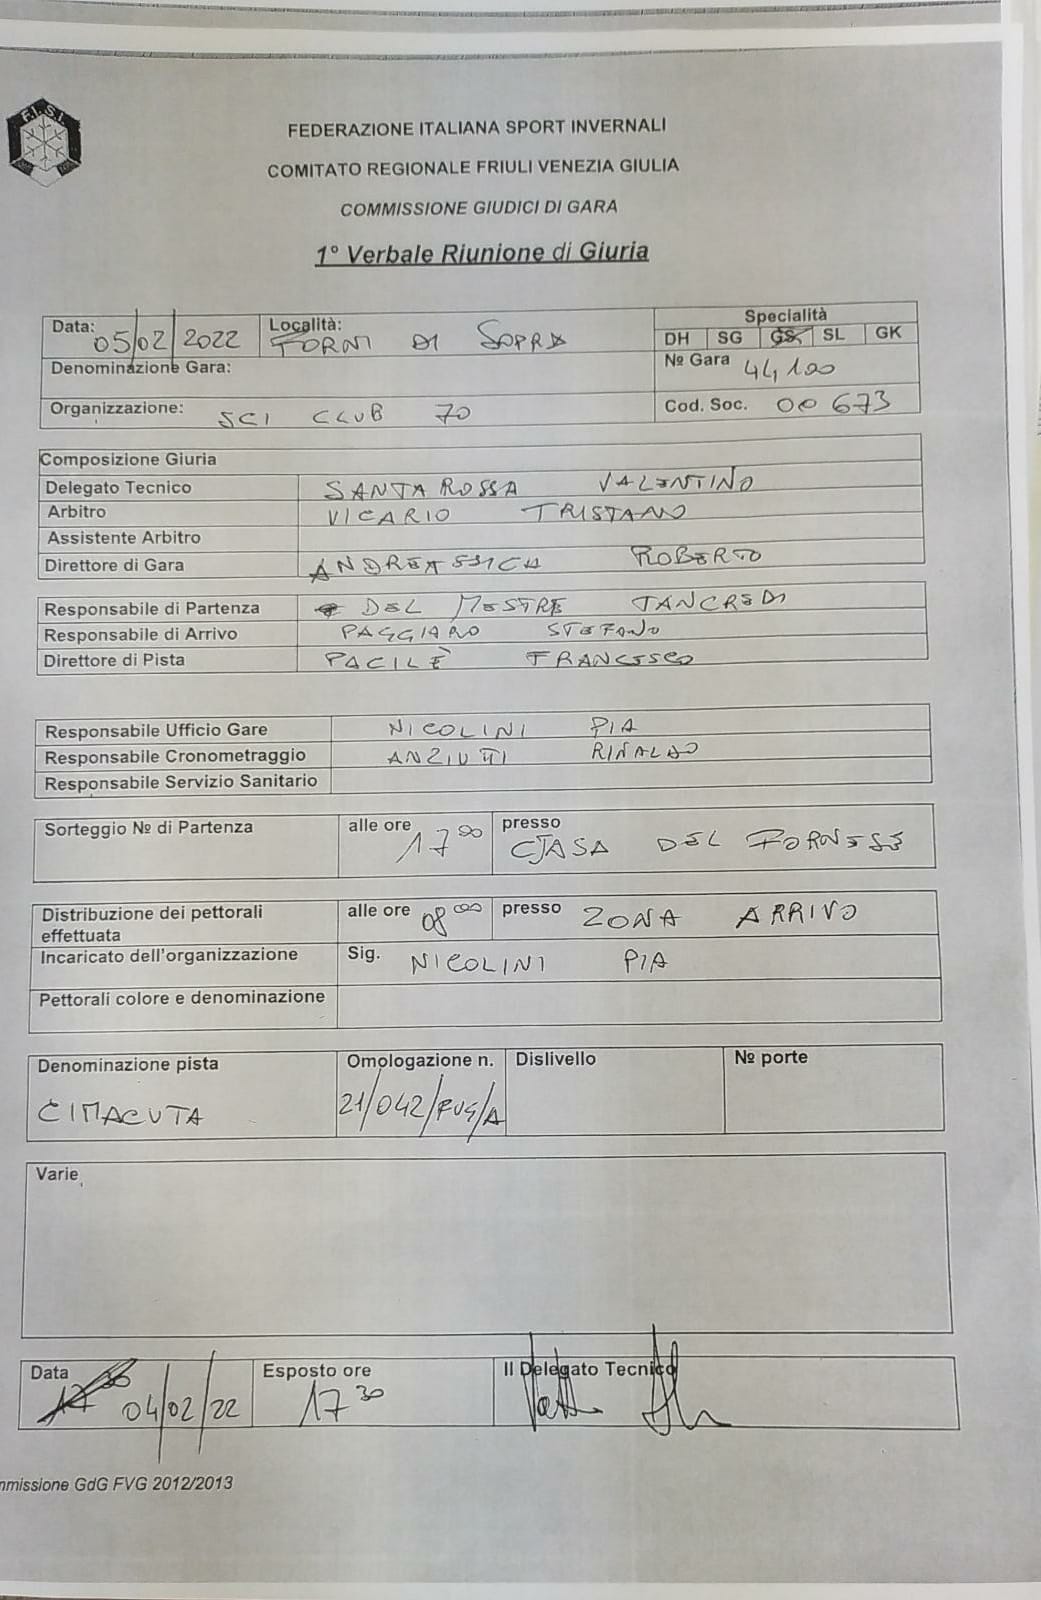 F.I.S.I.
FEDERAZIONE ITALIANA SPORT INVERNALI
COMITATO REGIONALE FRIULI VENEZIA GIULIA
COMMISSIONE GIUDICI DI GARA
1° Verbale Riunione di Giuria
Data: 05/02/2022 Località: FORNI DI SOPRA Specialità
DH SG GS SL GK
Denominazione Gara: № Gara 44,100
Organizzazione: SCI CLUB 70 Cod. Soc. 00673
Composizione Giuria
Delegato Tecnico SANTAROSSA VALENTINO
Arbitro VICARIO TRISTANO
Assistente Arbitro
Direttore di Gara ANDREASSICH ROBERTO
Responsabile di Partenza DEL MESTRE TANCREDI
Responsabile di Arrivo PAGGIARO STEFANO
Direttore di Pista PACILÈ FRANCESCO
Responsabile Ufficio Gare NICOLINI PIA
Responsabile Cronometraggio ANZIUTTI RINALDO
Responsabile Servizio Sanitario
Sorteggio № di Partenza alle ore 17 00 presso CJASA DEL FORNESE
Distribuzione dei pettorali effettuata alle ore 08 00 presso ZONA ARRIVO
Incaricato dell'organizzazione Sig. NICOLINI PIA
Pettorali colore e denominazione
Denominazione pista Omologazione n. Dislivello № porte
CIMACUTA 21/042/FVG/A
Varie
Data Esposto ore Il Delegato Tecnico
04/02/22 17 30
mmissione GdG FVG 2012/2013